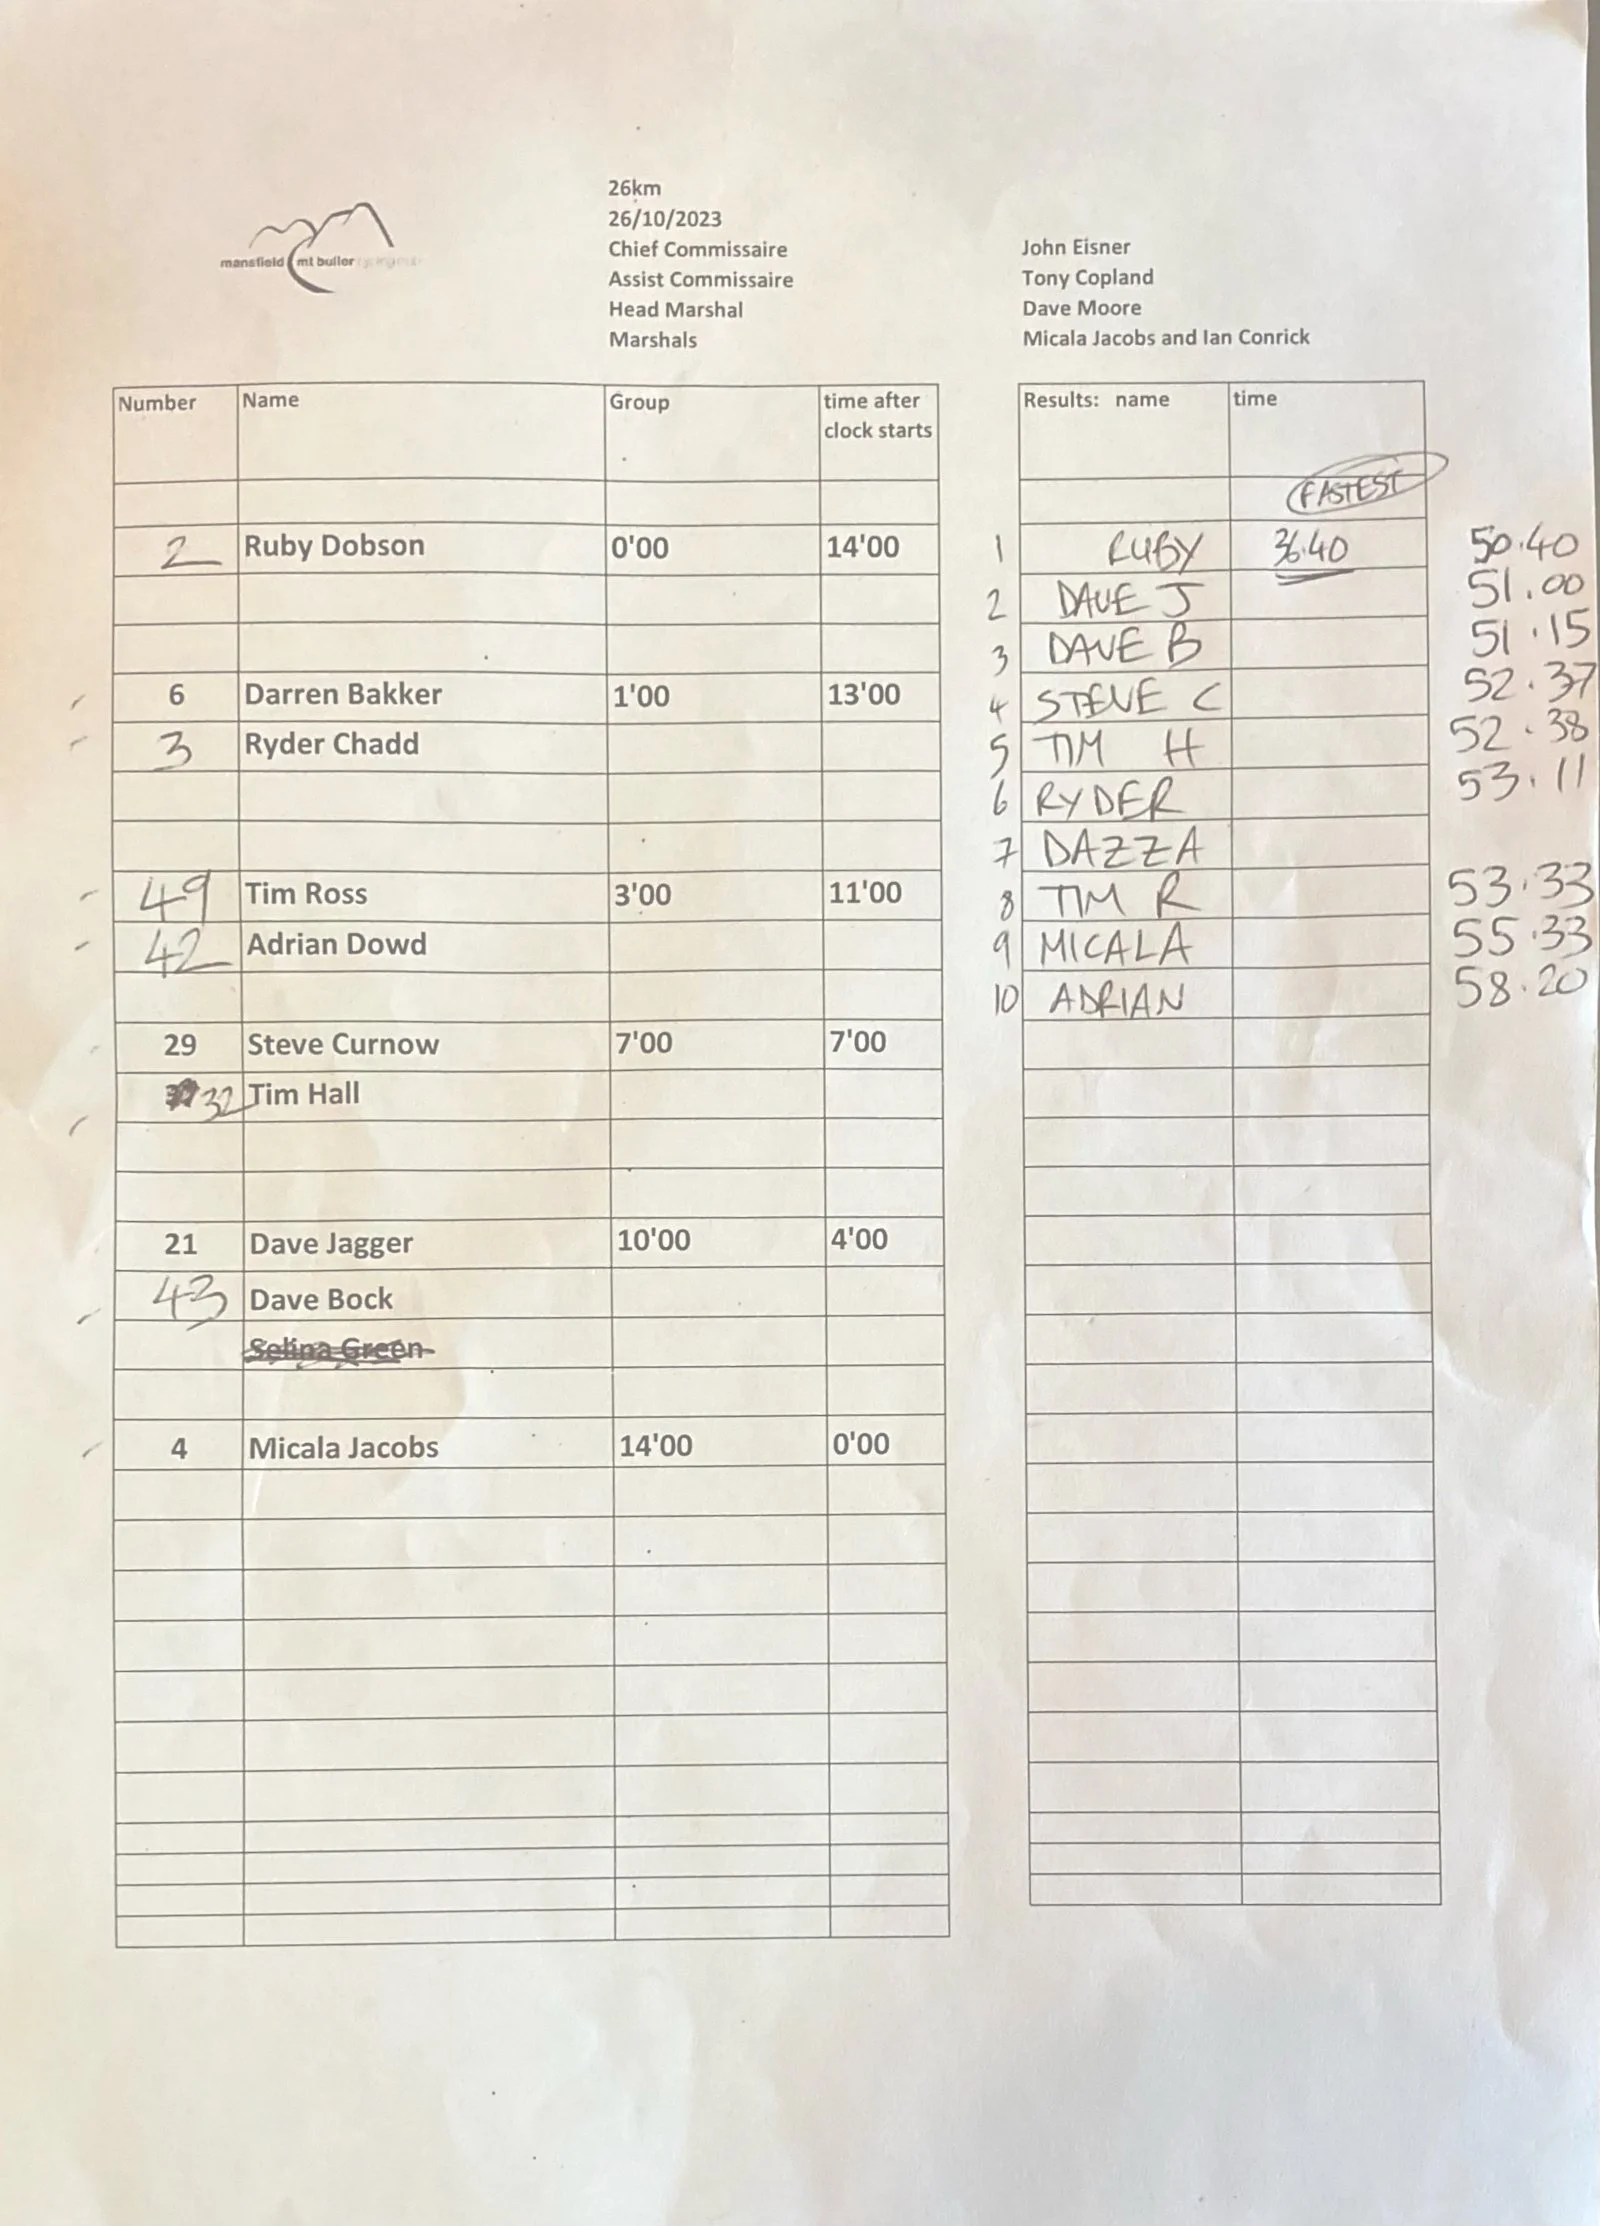 26km
26/10/2023
Chief Commissaire John Eisner
Assist Commissaire Tony Copland
Head Marshal Dave Moore
Marshals Micala Jacobs and Ian Conrick
mansfield mt buller
Number Name Group time after clock starts
2 Ruby Dobson 0'00 14'00
6 Darren Bakker 1'00 13'00
3 Ryder Chadd
49 Tim Ross 3'00 11'00
42 Adrian Dowd
29 Steve Curnow 7'00 7'00
32 Tim Hall
21 Dave Jagger 10'00 4'00
43 Dave Bock
Selina Green
4 Micala Jacobs 14'00 0'00
Results: name time
FASTEST
1 RUBY 36.40 50.40
2 DAVE J 51.00
3 DAVE B 51.15
4 STEVE C 52.37
5 TIM H 52.38
6 RYDER 53.11
7 DAZZA
8 TIM R 53.33
9 MICALA 55.33
10 ADRIAN 58.20